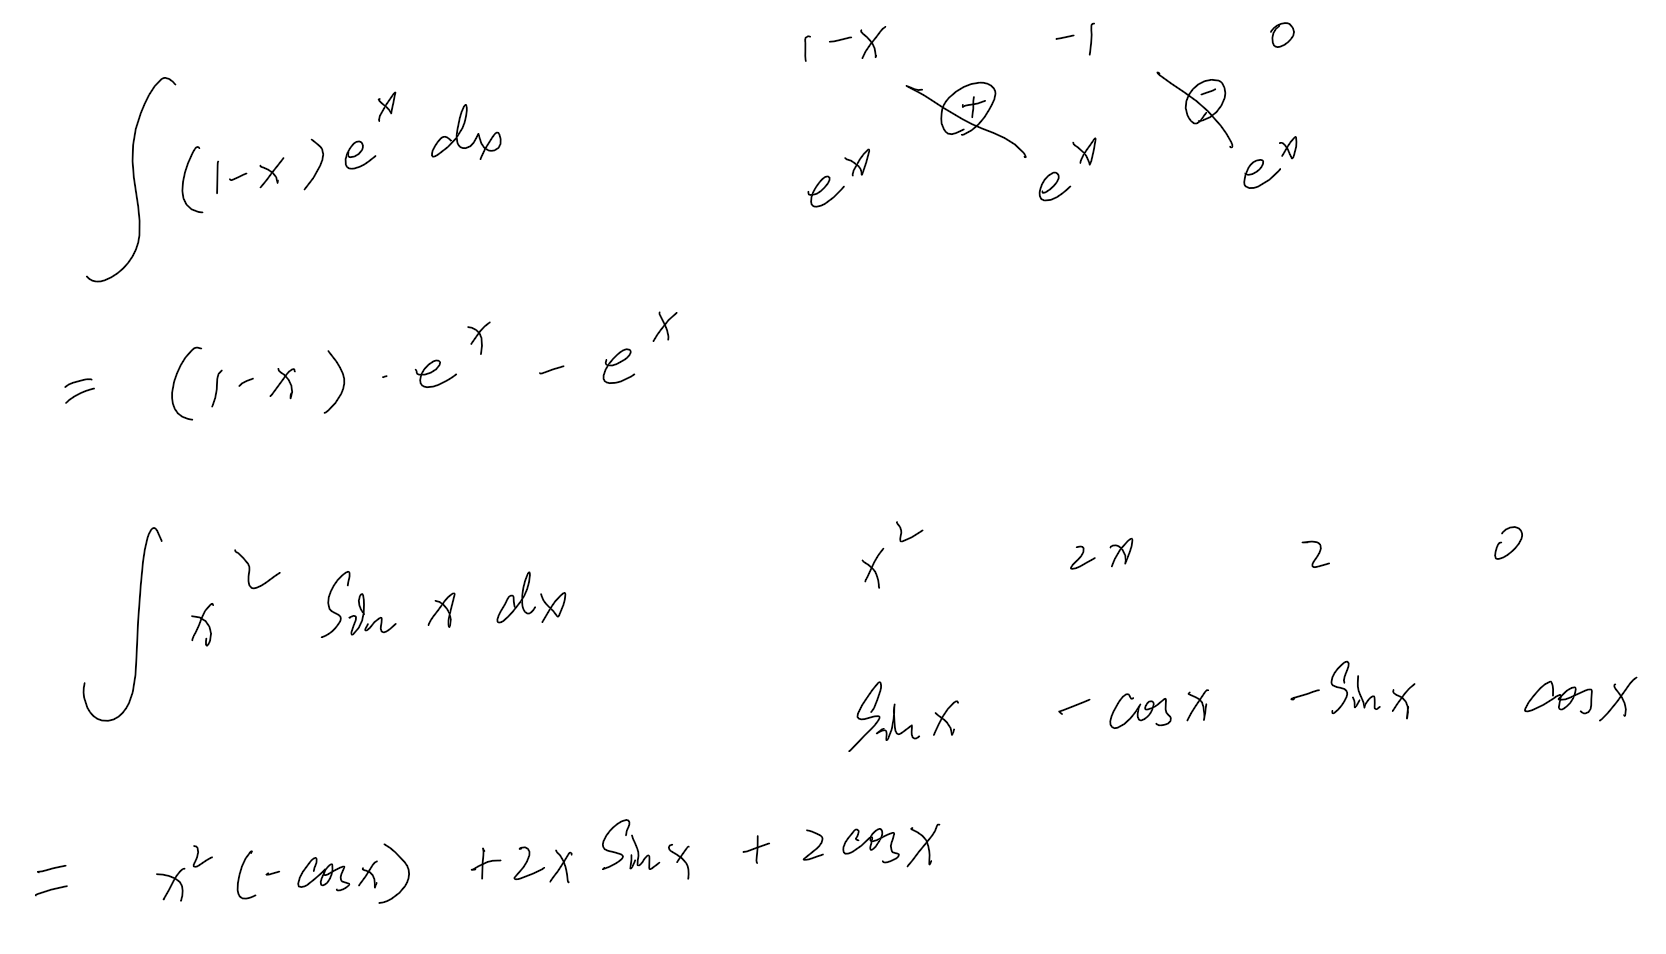 ∫(1-x)e^x dx
1-x -1 0
⊕ ⊖
e^x e^x e^x
= (1-x)·e^x - e^x
∫x^2 Sin x dx
x^2 2x 2 0
Sin x -cosx -Sinx cosx
= x^2(-cosx) +2x Sinx + 2cosx